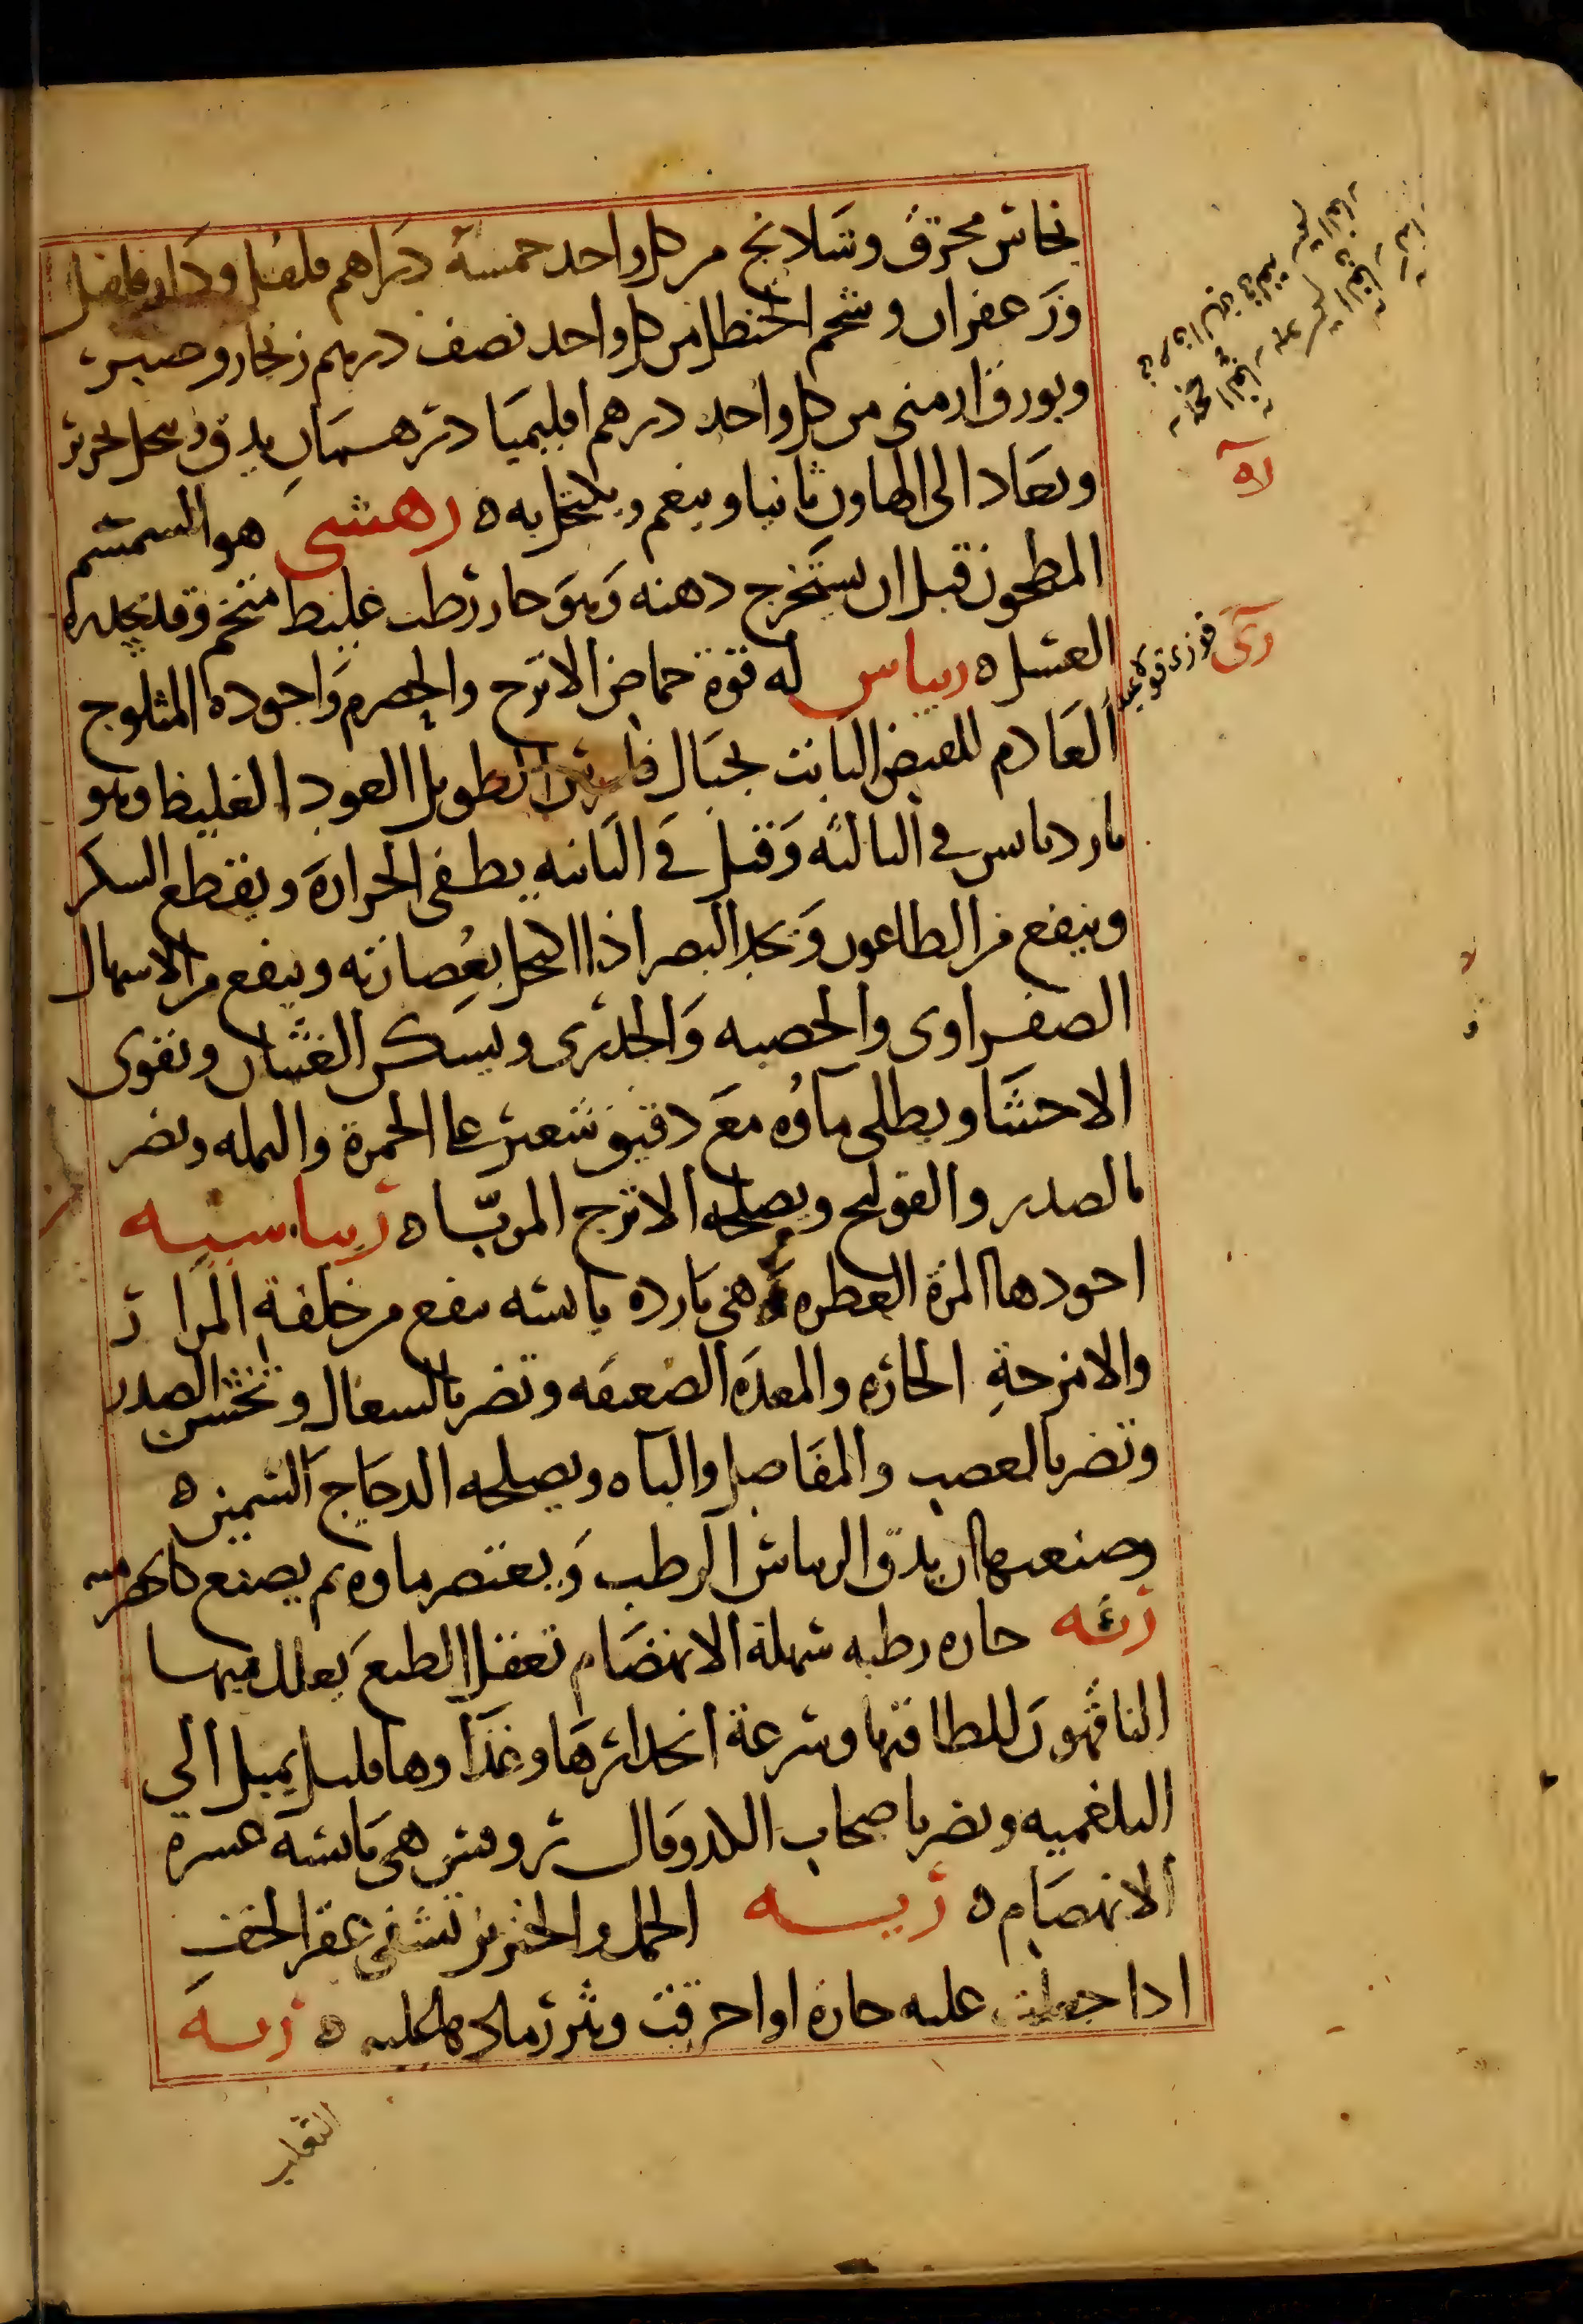 نحاس محرق وشلانج من كل واحد خمسة دراهم فلفل ودار فلفل
وزعفران وشحم الحنظل من كل واحد نصف درهم زنجار وصبر
وبورق ارمنى من كل واحد درهم اقليميا درهمان يدق وينخل بحرير
ويعاد الى الهاون ثانيا وينعم ويكتحل به ه رهشى هو السمسم
المطحون قبل ان يستخرج دهنه وهو حار رطب غليظ متخم وقد يصلحه
العسل ه ريباس له قوة حماض الاترج والحصرم واجوده المثلوج
العادم للقبض النابت بجبال فارس الطويل العود الغليظ وهو
بارد يابس فى الثالثه وقيل فى الثانيه يطفى الحرارة ويقطع السكر
وينفع من الطاعون ويحد البصر اذا اكتحل بعصارته وينفع من الاسهال
الصفراوى والحصبه والجدرى ويسكن الغثيان ويقوى
الاحشا ويطلى ماؤه مع دقيق شعير على الحمرة والنمله ويضر
بالصدر والقولنج ويصلحه الاترج المربّا ه ريباسيه
اجودها المزة العطره وهى بارده يابسه تنفع من خلفة المرار
والامزجة الحاره والمعده الضعيفه وتضر بالسعال وتخشن الصدر
وتضر بالعصب والمفاصل والباه ويصلحه الدجاج السمين ه
وصنعتها ان يدق الريباس الرطب ويعتصر ماوه ثم يصنع كالحصرميه
رئه حاره رطبه سهلة الانهضام تعقل الطبع يعلل فيها
الناقهون للطافتها وسرعة انحدارها وغذاوها قليل يميل الى
البلغميه ويضر باصحاب الكد وقال روفس هى يابسه عسرة
الانهضام ه ريه الحمل والخنزير تشفى عقر الخف
اذا جعلت عليه حارة او احرقت ونثر رمادها عليه ه ريه
الثعلب